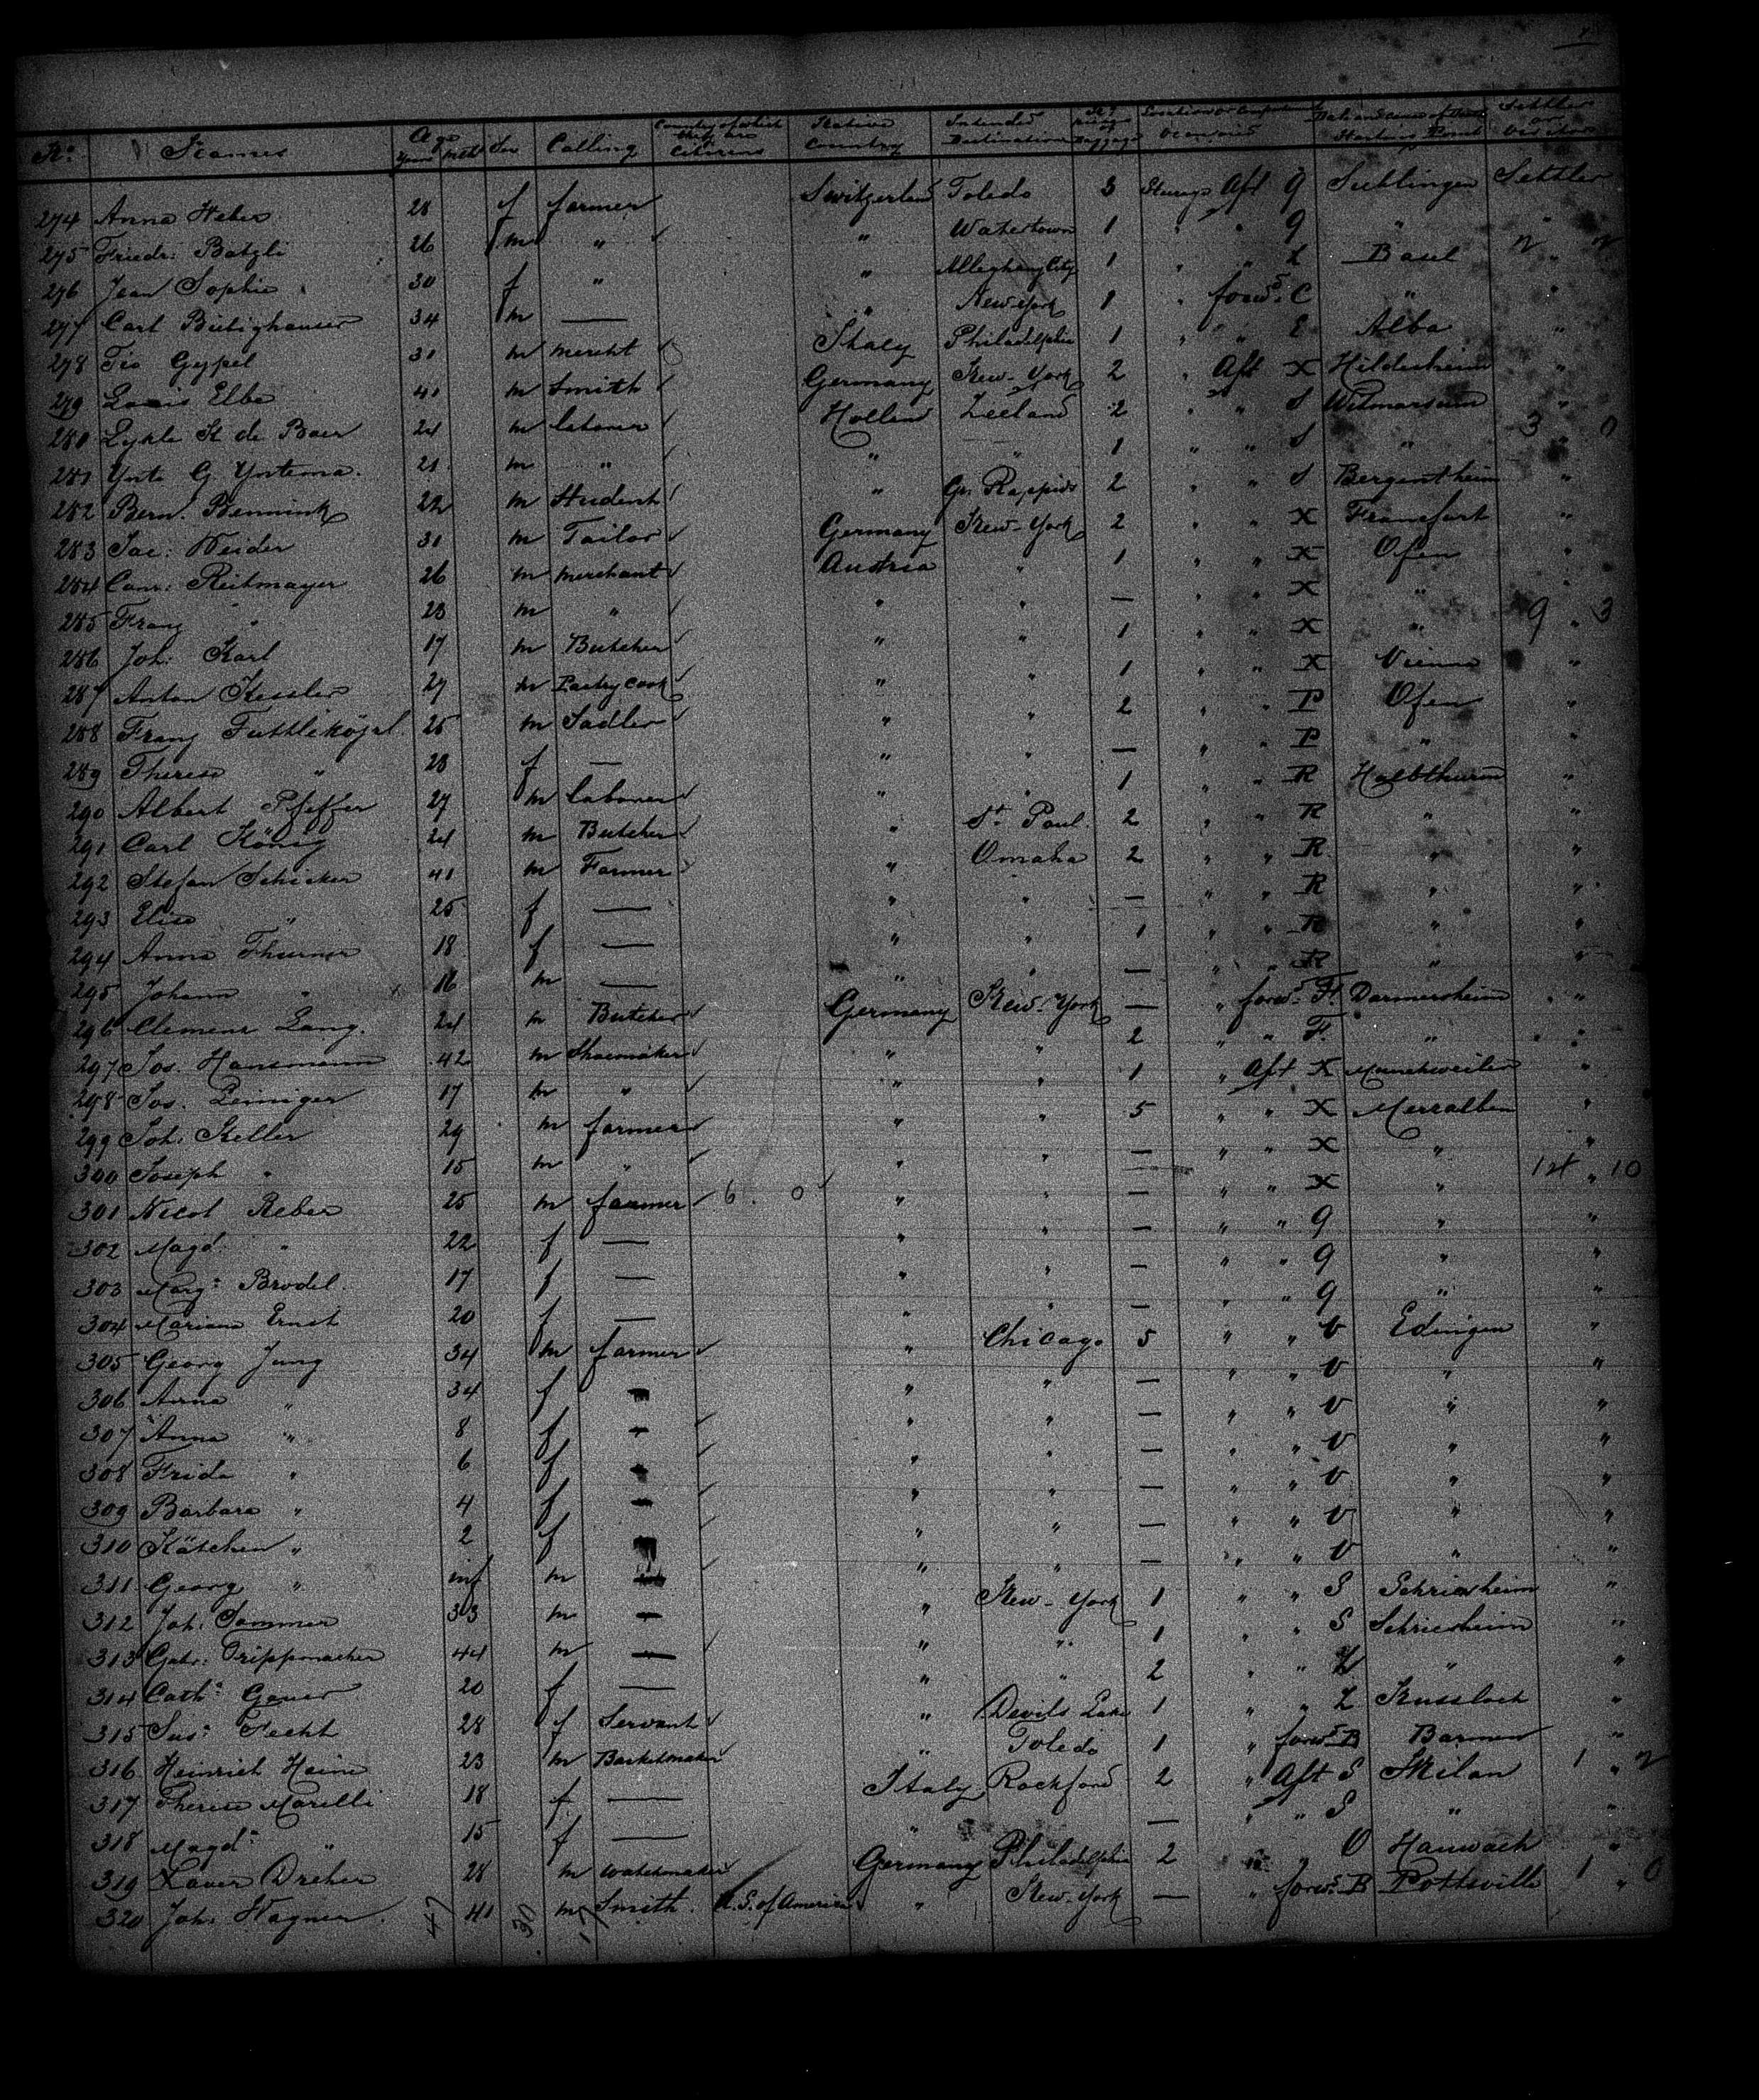 No. Names Age Years Mths Sex Calling Country of which they are Citizens Native Country Intended Destination Location of Compartment Occupied Settler or Visitor
274 Anna Heber 28 f farmer Switzerland Toledo 3 Steerage Aft g Settler
275 Friedr: Batzli 26 m " " Watertown 1 " " g " "
276 Jean Sophie 30 f " " Alleghany City 1 " " Z Basel "
277 Carl 34 m — " New-York 1 " forwd. C " "
278 Tio Gypel 31 m mercht Italy Philadelphia 1 " " E Alba "
279 Louis Elbe 41 m Smith Germany New-York 2 " Aft X Hildesheim "
280 Lykle K de Boer 24 m laborer Holland Zeeland 2 " " S Witmarsum "
281 Ynte G. Yntema 21 m " " " 1 " " S "
282 Bern. Bennink 22 m Student " Gr. Rappids 2 " " S Bergentheim "
283 Jac: Weider 31 m Tailor Germany New-York 2 " " X Francfort "
284 Reitmayer 26 m merchant Austria " 1 " " X Ofen "
285 Franz " 23 m " " " — " " X "
286 Joh: Karl 17 m Butcher " " 1 " " X "
287 Anton Kessler 27 m Pastry cook " " 1 " " X Vienna "
288 Franz 25 m Sadler " " 2 " " P Ofen "
289 Therese " 23 f — " " — " " P "
290 Albert Pfeffer 27 m laborer " " 1 " " R Halbthurn "
291 Carl König 24 m Butcher " St. Paul 2 " " R " "
292 Stefan Schicker 41 m Farmer " Omaha 2 " " R " "
293 Elise " 25 f — " " — " " R " "
294 Anna Thurner 18 f — " " 1 " " R " "
295 Johann " 16 m — " " — " " R " "
296 Clemens Lang. 24 m Butcher Germany New-York — " forwd. F. Darmersheim "
297 Jos. Hansmann 42 m Shoemaker " " 2 " " F. " "
298 Jos. Leiniger 17 m " " " 1 " Aft X Munchweiler "
299 Joh: Keller 29 m farmer " " 5 " " X Merzalben "
300 Joseph " 15 m " " " — " " X " "
301 Nicol Reber 25 m farmer 6 0 " " — " " X " "
302 Magd. " 22 f — " " — " " g " "
303 Marg: Brodel. 17 f — " " — " " g " "
304 Mariana Ernst 20 f — " " — " " g " "
305 Georg Jung 34 m farmer " Chicago 5 " " V Edingen "
306 Anna " 34 f — " " — " " V " "
307 Anna " 8 f — " " — " " V " "
308 Frida " 6 f — " " — " " V " "
309 Barbara " 4 f — " " — " " V " "
310 Kätchen " 2 f — " " — " " V " "
311 Georg " inf m — " " — " " V " "
312 Joh. Sommer 33 m — " New-York 1 " " S Schriesheim "
313 Gabr: Trippmacher 44 m — " " 1 " " S Schriesheim "
314 Cath: Gauer 20 f — " " 2 " " Z " "
315 Sus: Fecht 28 f Servant " Devils Lake 1 " " Z Nussloch "
316 Heinrich Heine 23 m Basketmaker " Toledo 1 " forwd. B Barmen "
317 Therese Marelli 18 f — Italy Rockford 2 " Aft S Milan "
318 Magd: " 15 f — " — " " S " "
319 Xaver Dreher 28 m watchmaker Germany Philadelphia 2 " " O "
320 Joh: Wagner. 41 m Smith. U.S. of America " New-York — " forwd. B Pottsville "